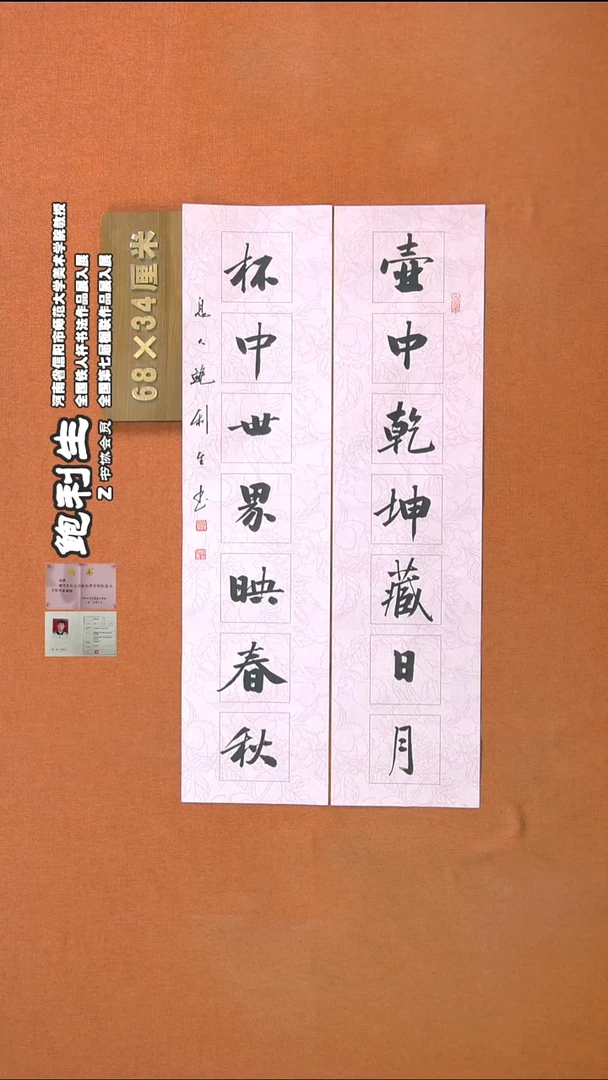 壶中乾坤藏日月
杯中世界映春秋
息人鲍利生书
68×34厘米
河南省信阳市师范大学美术学院教授
全国铁人杯书法作品展入展
全国第七届楹联作品展入展
鲍利生
Z书协会员